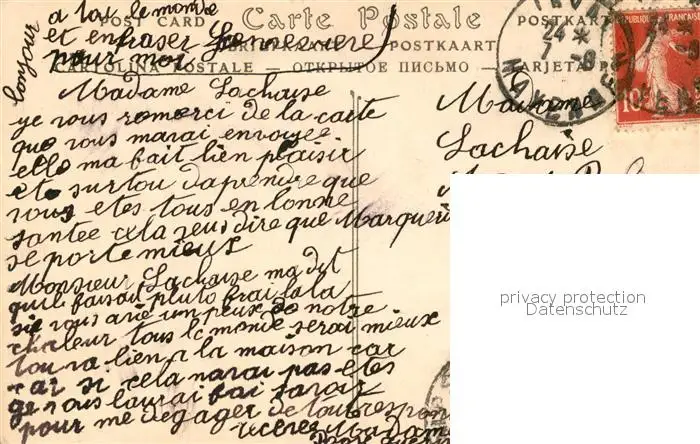 bonjour
a tous le monde
et enfraser Gennevieve
pour moi
POST CARD Carte Postale POSTKARTE
POSTKAART
CARTOLINA POSTALE — ОТКРЫТОЕ ПИСЬМО — TARJETA PO
24 * 8
7
REPUBLIQUE FRANÇAISE
10
Madame Lachaise
Madame
Lachaise
ye vous remerci de la carte
que vous mavai envoyee
elle ma bait bien plaisir
ete surtou daprendre que
vous etes tous en bonne
santee cela veus dire que Margueri
se porte mieux
Monsieur Lachaise ma dit
quil faisau pluto frai la la
si vous avie un peux de notre
chaleur tous le monde serai mieux
tou va bien a la maison car
car si cela navai pas etes
ge vous laurai fai savoir
pour me degager de toute respon
Madam
privacy protection
Datenschutz